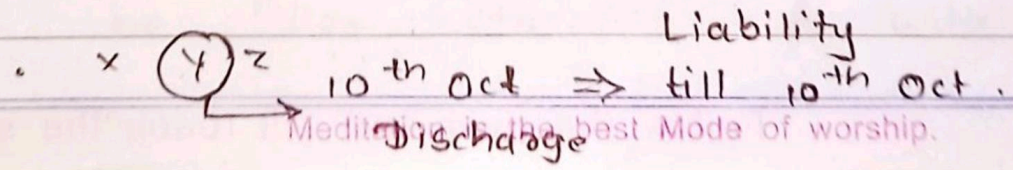 Liability
. x (Y) z 10th Oct ⇒ till 10th Oct.
Discharge
Meditation is the best Mode of worship.